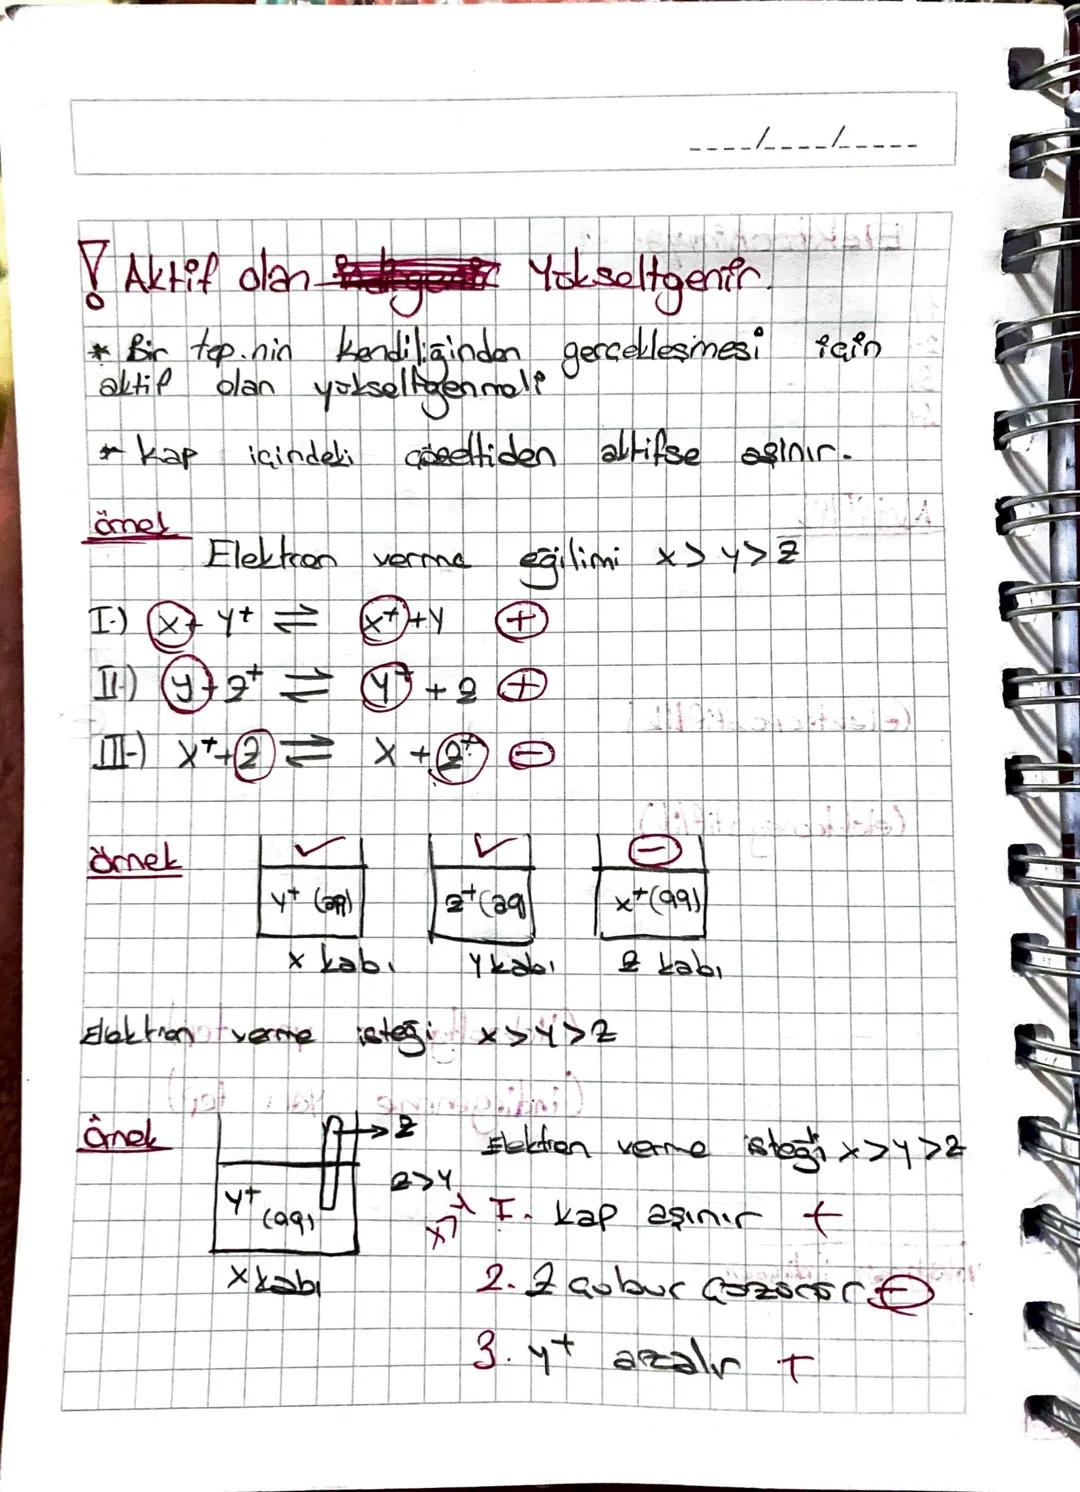 ----/----/-----
! Aktif olan Yükseltgenir.
* Bir tep.nin kendiliğinden gerçekleşmesi için
aktif olan yükseltgenmeli
* kap içindeki çözeltiden aktifse aşınır.
örnek
Elektron verme eğilimi x > y > z
I-) x + y⁺ ⇌ x⁺ + y (+)
II-) y + z⁺ ⇌ y⁺ + z (+)
III-) x⁺ + z ⇌ x + z⁺ (-)
örnek ✓ ✓ (-)
y⁺ (aq) z⁺ (aq) x⁺ (aq)
x kabı y kabı z kabı
Elektron verme isteği x > y > z
Örnek → z Elektron verme isteği x > y > z
z > y
y⁺ (aq) x > y I. kap aşınır +
x kabı 2. Z çubuk çözünür (-)
3. y⁺ azalır +